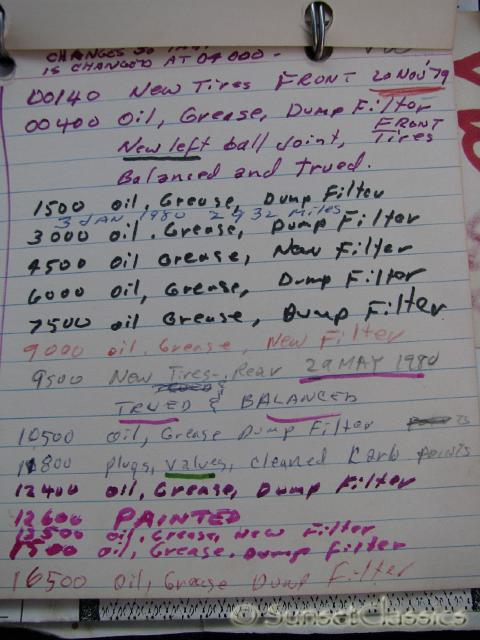 CHANGES SO THAT
IS CHANGED AT 04000-
VW
00140 New Tires FRONT 20 Nov '79
00400 Oil, Grease, Dump Filter
New left ball joint, FRONT Tires
Balanced and Trued.
1500 oil, Grease, Dump Filter
3 JAN 1980 2932 Miles
3000 oil. Grease, Dump Filter
4500 oil Grease, New Filter
6000 oil, Grease, Dump Filter
7500 oil Grease, Dump Filter
9000 oil. Grease, New Filter
9500 New Tires-, Rear 29 MAY 1980
TRUED & BALANCED
10500 oil, Grease Dump Filter
11800 plugs, valves, cleaned Karb points
12400 oil, Grease, Dump Filter
12600 PAINTED
13500 oil, Grease, New Filter
1500 oil, Grease, Dump Filter
16500 oil, Grease Dump Filter
© SunsetClassics